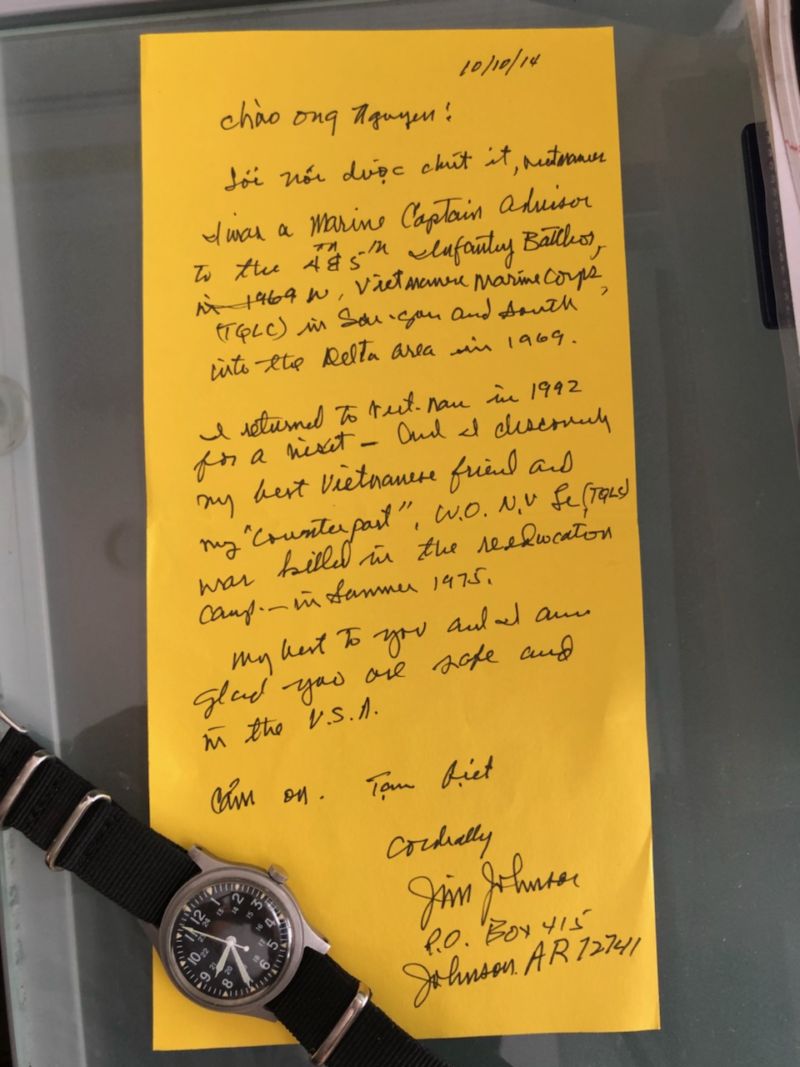 10/10/14
Chào ong Nguyen!
Tôi nói được chút it, vietnamese
I was a Marine Captain Advisor
to the 4th & 5th Infantry Battlions,
in 1969 w, Vietnamese Marine Corps,
(TQLC) in Sai-gon and south
into the Delta area in 1969.
I returned to Viet-nam in 1992
for a visit – and I discovered
my best Vietnamese friend and
my "counterpart", W.O. N.V Le (TQLC)
was killed in the reeducation
camp. – in Summer 1975.
My best to you and I am
glad you are safe and
in the U.S.A.
Cảm on. Tạm biẹt
Cordially
Jim Johnson
P.O. Box 415
Johnson AR 72741
12
1
2
3
4
5
6
7
8
9
10
11